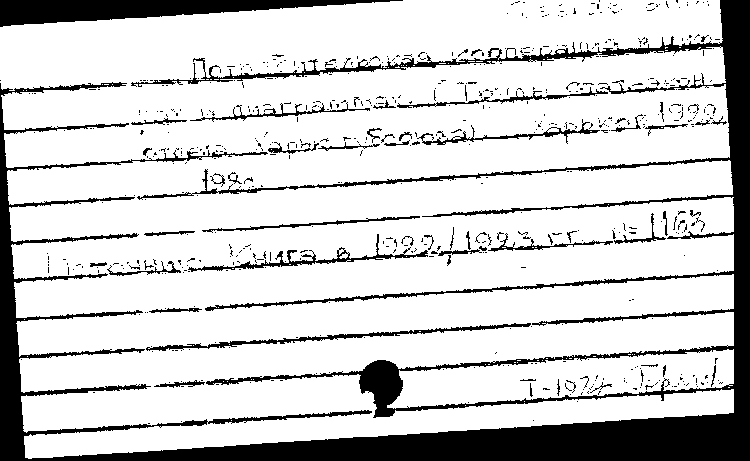 Потребительская кооперация в циф-
рах и диаграммах. (Труды стат-экон.
отдела Харьк. губсоюза). Харьков, 1922
198с
Источник: Книга в 1922/1923 гг. № 1163